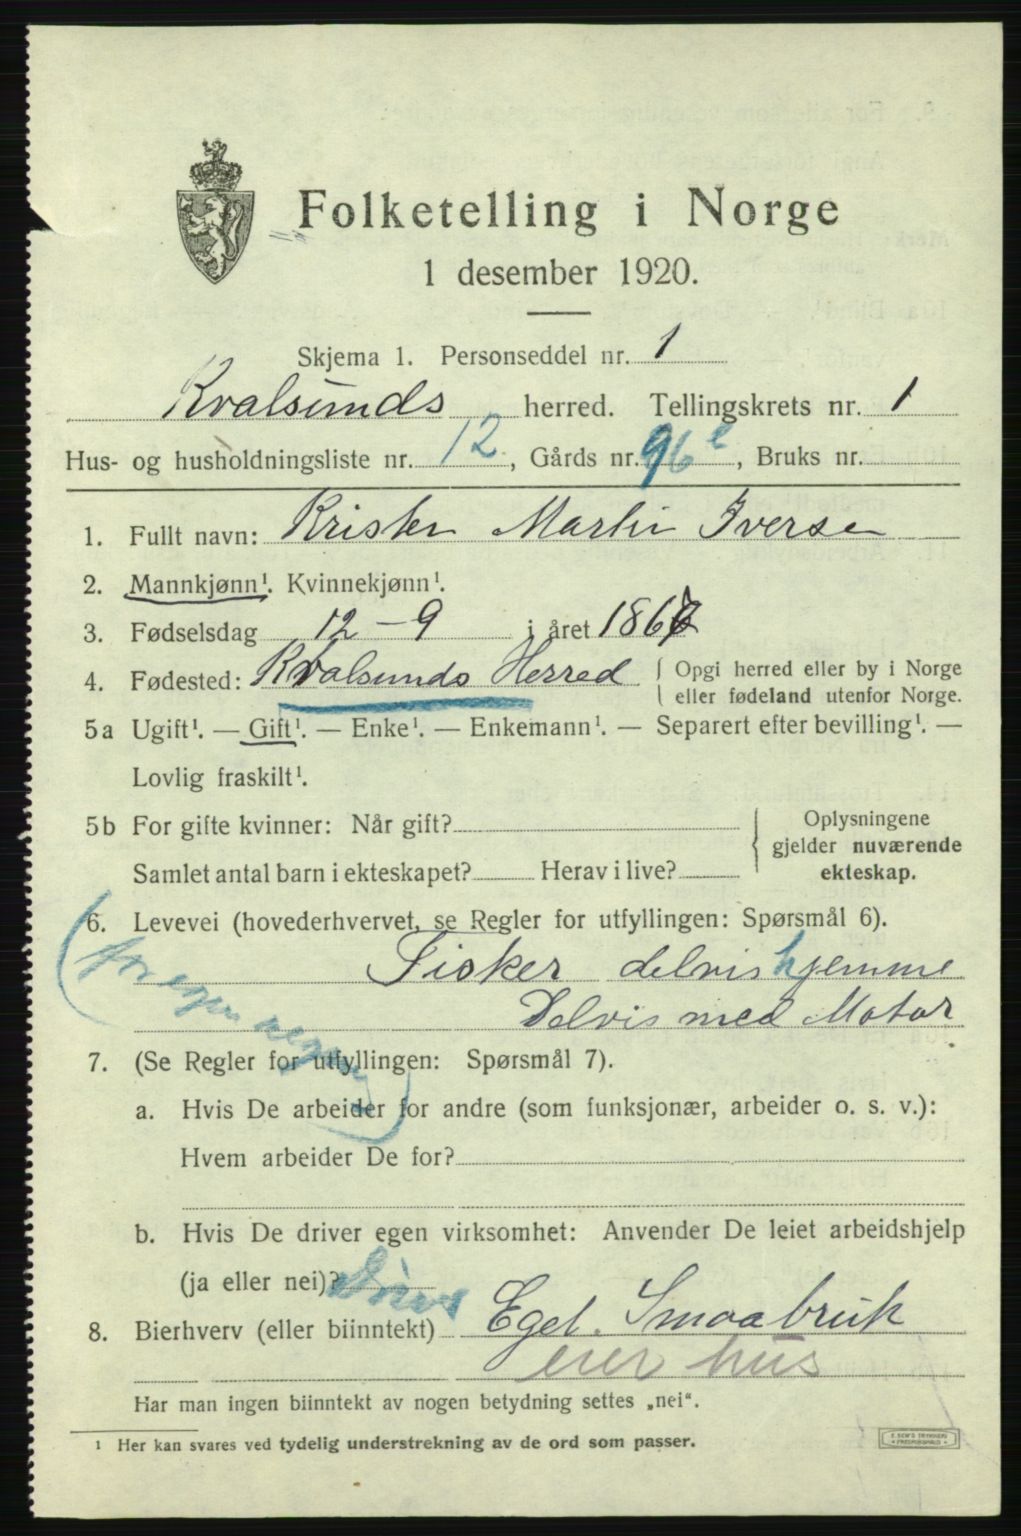 Folketelling i Norge
1 desember 1920.
Skjema 1. Personseddel nr. 1
Kvalsunds herred. Tellingskrets nr. 1
Hus- og husholdningsliste nr. 12, Gårds nr. 96 e, Bruks nr.
1. Fullt navn: Kristen Martin Iversen
2. Mannkjønn¹. Kvinnekjønn¹.
3. Fødselsdag 12-9 i året 1867
4. Fødested: Kvalsunds Herred { Opgi herred eller by i Norge
eller fødeland utenfor Norge.
5a Ugift¹. — Gift¹. — Enke¹. — Enkemann¹. — Separert efter bevilling¹. —
Lovlig fraskilt¹.
5b For gifte kvinner: Når gift?
Samlet antal barn i ekteskapet? Herav i live?
Oplysningene
gjelder nuværende
ekteskap.
6. Levevei (hovederhvervet, se Regler for utfyllingen: Spørsmål 6).
Fisker delvis hjemme
Delvis med Motor
for egen regning
7. (Se Regler for utfyllingen: Spørsmål 7).
a. Hvis De arbeider for andre (som funksjonær, arbeider o. s. v.):
Hvem arbeider De for?
b. Hvis De driver egen virksomhet: Anvender De leiet arbeidshjelp
(ja eller nei)?
8. Bierhverv (eller biinntekt) Driver Eget Smaabruk
eier hus
Har man ingen biinntekt av nogen betydning settes „nei“.
¹ Her kan svares ved tydelig understrekning av de ord som passer.